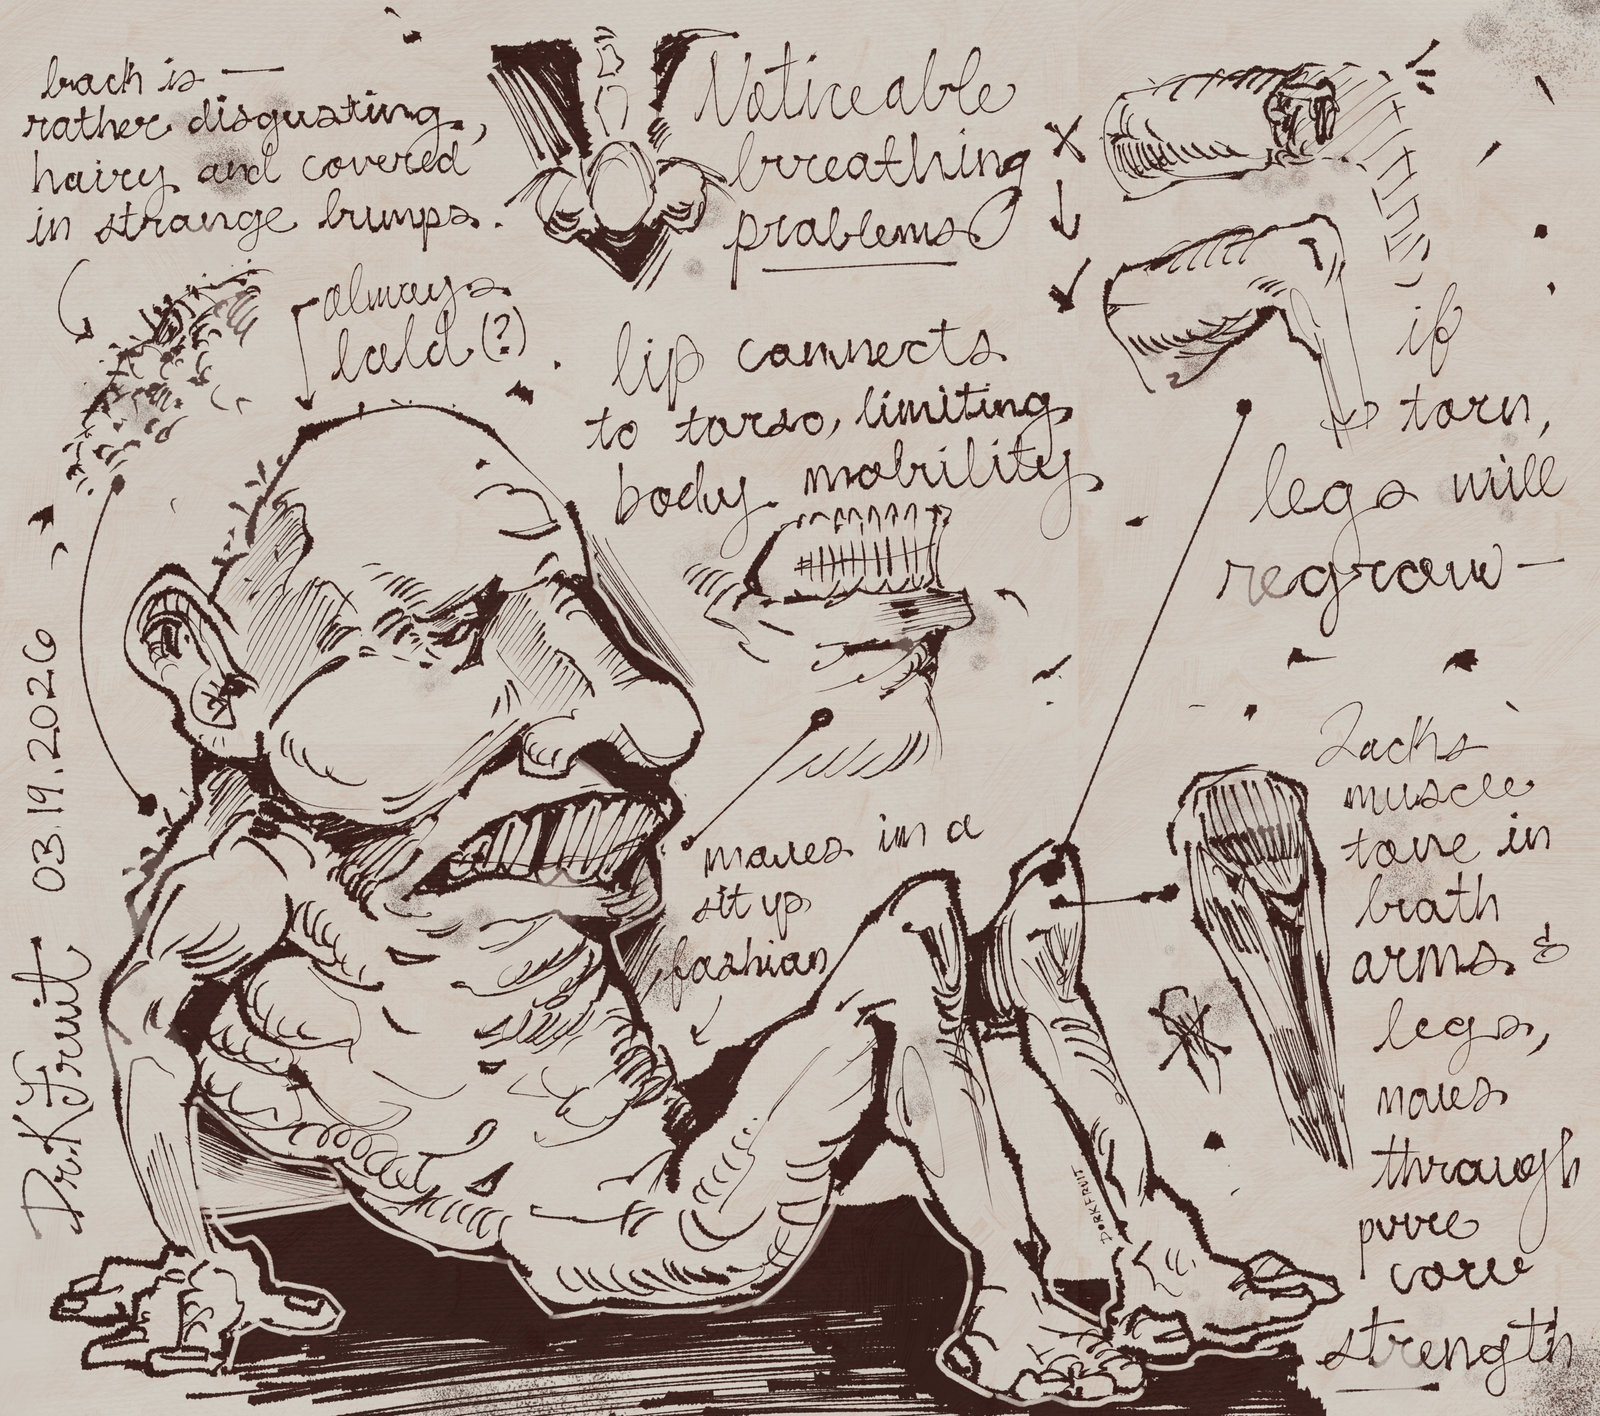 back is —
rather disgusting,
hairy and covered
in strange bumps.
always
bald (?)
Noticeable
breathing
problems
lip connects
to torso, limiting
body mobility
if
torn,
legs will
regrow —
moves in a
sit up
fashion
Lacks
muscle
tone in
both
arms &
legs,
moves
through
pure
core
strength
DrkFruit 03.19.2026
DORKFRUIT